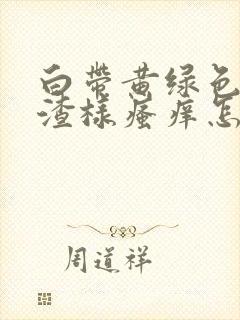 白带黄绿色
渣样瘙痒怎
周道祥